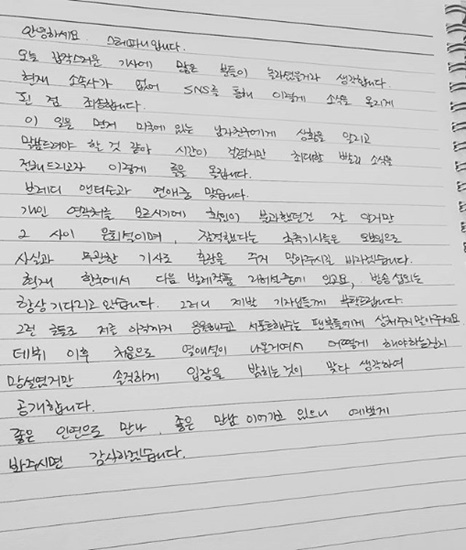 안녕하세요. 스테파니입니다.
오늘 갑작스러운 기사에 많은 분들이 놀라셨을거라 생각합니다
현재 소속사가 없어 SNS를 통해 이렇게 소식을 올리게
된 점 죄송합니다.
이 일을 먼저 미국에 있는 남자친구에게 상황을 알리고
말씀드려야 할 것 같아 시간이 걸렸지만 최대한 빠르게 소식을
전해드리고자 이렇게 글을 올립니다.
브래디 앤더슨과 연애중 맞습니다.
개인 연락처를 모르시기에 확인이 불가했던건 잘 알지만
그 사이 은퇴설이며, 잠적했다는 추측기사들은 오보임으로
사실과 무관한 기사로 혼란을 주지 말아주시길 바라겠습니다.
현재 한국에서 다음 발레작품 리허설중에 있고요, 방송 섭외는
항상 기다리고 있습니다. 그러니 제발 기자님들께 부탁드립니다.
그런 글들로 저를 아직까지 응원해주고 서포트해주는 팬분들에게 상처주지 말아주세요
데뷔 이후 처음으로 열애설이 나온거여서 어떻게 해야하는건지
망설였지만 솔직하게 입장을 밝히는것이 맞다 생각하여
공개합니다.
좋은 인연으로 만나, 좋은 만남 이어가고 있으니 예쁘게
봐주시면 감사하겠습니다.